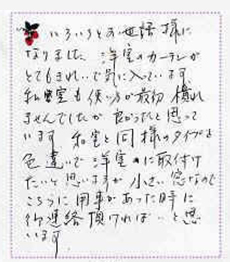 いろいろとお世話様に
なりました 洋室のカーテンが
とてもきれいで気に入っています
和室も使い方が最初慣れ
ませんでしたが良かったと思って
います 和室と同様のタイプを
色違いで洋室に取付け
たいと思いますが小さい窓なので
こちらに用事があった時に
御連絡頂ければいいと思
います